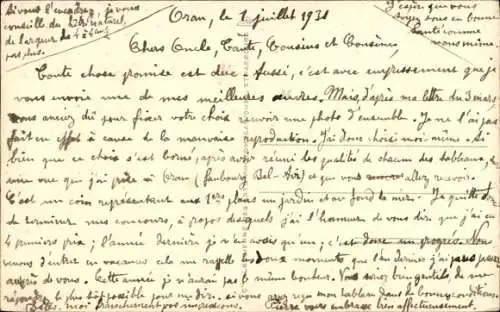 Si vous l'encadrez, je vous
conseille du naturel,
de largeur de 4 à 6 cm
pas plus.
J'espère que vous
soyez tous en bonne
santé comme
nous même.
Oran, le 1 juillet 1931
Chers Oncle, Tante, Cousins et Cousines,
Toute chose promise est due. Aussi, c'est avec empressement que je
vous envoie une de mes meilleures œuvres. Mais, d'après ma lettre du 3 mars
vous auriez dû pour fixer votre choix recevoir une photo d'ensemble. Je ne l'ai pas
fait en effet à cause de la mauvaise reproduction. J'ai donc choisi moi-même. Si
bien que ce choix s'est borné, après avoir réuni les qualités de chacun des tableaux, à
une vue que j'ai prise à Oran (faubourg Bel-Air) et que vous allez recevoir.
C'est un coin représentant au 1er plan un jardin et au fond la mer. Je
de terminer mes concours, à propos desquels j'ai l'honneur de vous dire que j'ai eu
4 premiers prix ; l'année dernière je n'en avais qu'un ; c'est donc un progrès. Nous
venons d'entrer en vacances cela me rappelle les doux moments que l'an dernier j'ai passés
auprès de vous. Cette année je n'aurai pas le même bonheur. Vous serez bien gentils de me
répondre le plus tôt possible pour me dire si vous avez reçu mon tableau dans de bonnes conditions.
moi franchement pas
Pierre vous embrasse bien affectueusement.